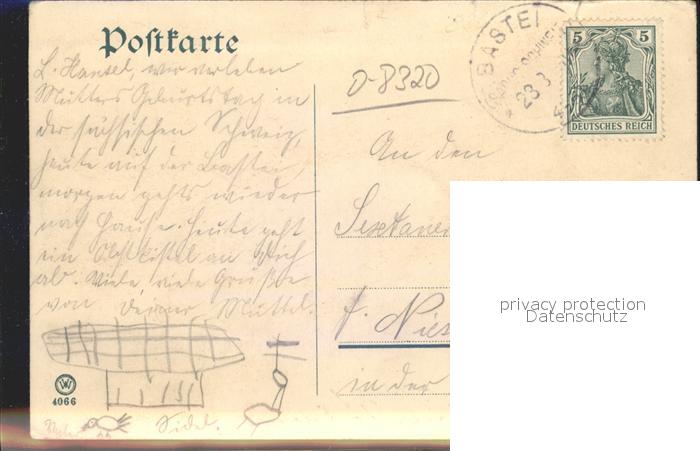 Postkarte
L. Hansel, wir verleben
Mutters Geburtstag in
der sächsischen Schweiz,
heute auf der Bastei,
morgen gehts wieder
nach Hause. Heute geht
ein Obstkistel an Dich
ab. Viele, viele Grüße
von Deiner Muttel.
4066
Sidel.
D-8320
BASTEI
23
5 5
DEUTSCHES REICH
An den
Sextaner
in der
privacy protection
Datenschutz